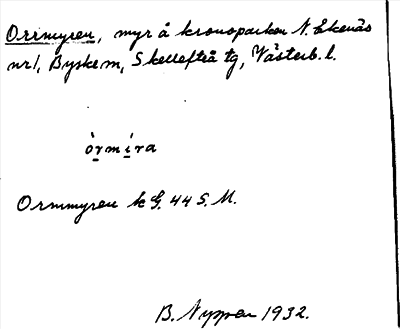 Orrmyren, myr å kronoparken N. Ekenäs
nr 1, Byske m, Skellefteå tg, Västerb. l.
òrmira
Orrmmyren k G. 44 S. M.
B. Nyppen 1932.